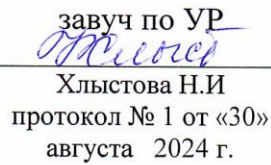 завуч по УР
Хлыстова Н.И
протокол № 1 от «30»
августа 2024 г.